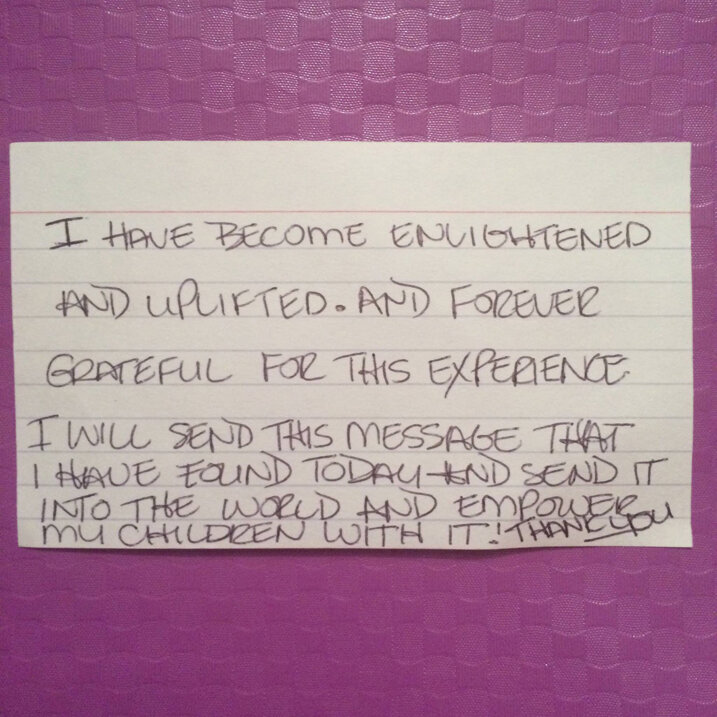 I HAVE BECOME ENLIGHTENED
AND UPLIFTED. AND FOREVER
GRATEFUL FOR THIS EXPERIENCE
I WILL SEND THIS MESSAGE THAT
I HAVE FOUND TODAY AND SEND IT
INTO THE WORLD AND EMPOWER
MY CHILDREN WITH IT! THANK YOU